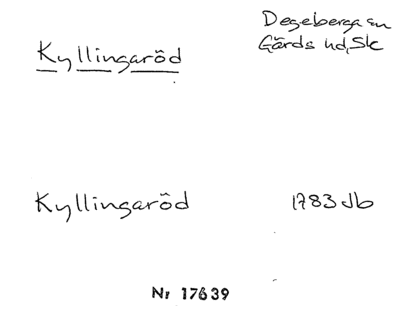 Degeberga sn
Kyllingaröd
Gärds hd, Sk
Kyllingaröd
1783 Jb
Nr 17639